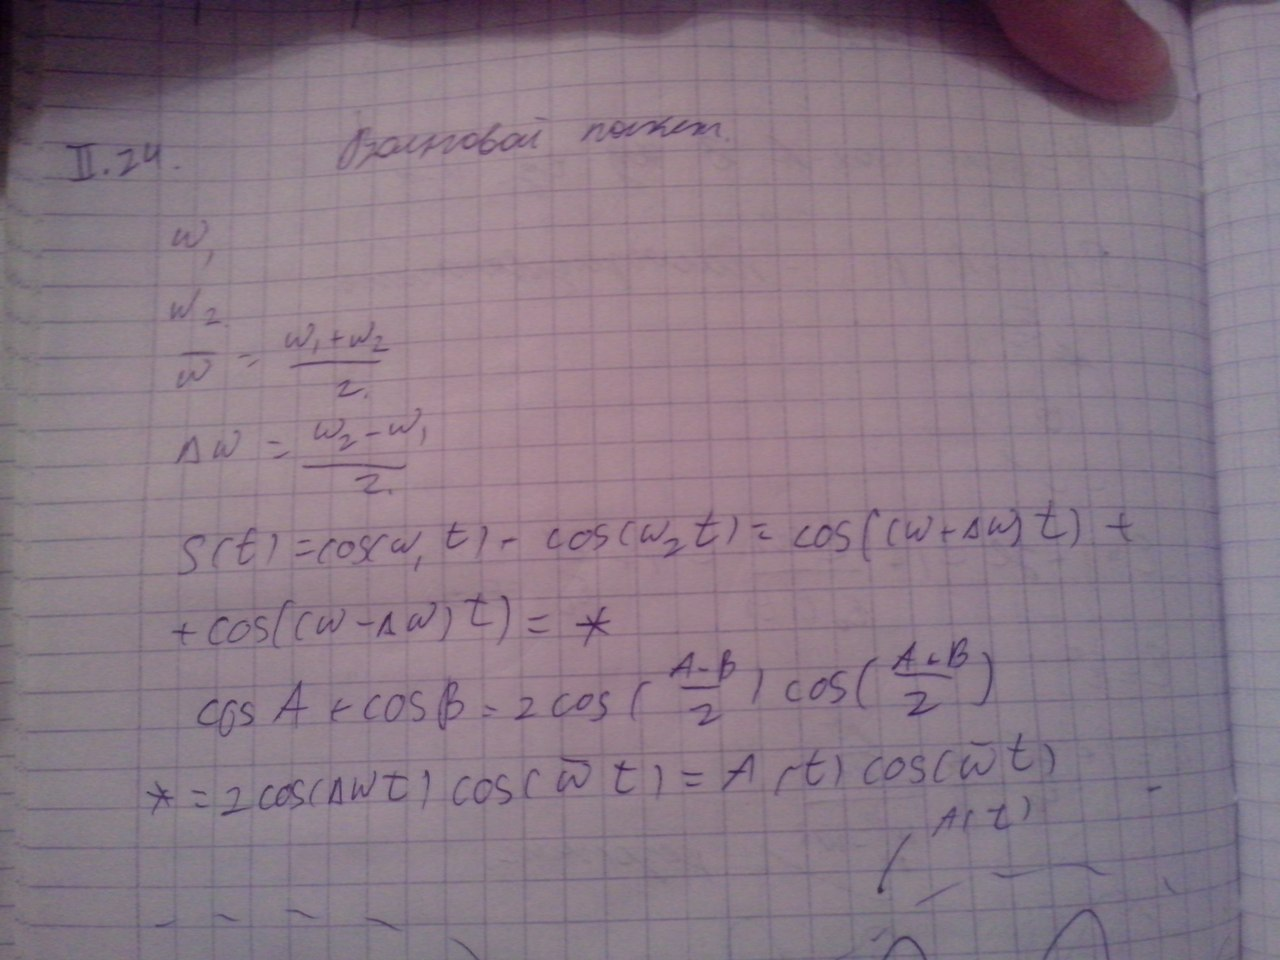 II.24. Волновой пакет.
ω₁
ω₂
ω̅ = (ω₁+ω₂)/2.
Δω = (ω₂-ω₁)/2.
S(t) = cos(ω₁t) - cos(ω₂t) = cos((ω+Δω)t) +
+ cos((ω-Δω)t) = *
cos A + cos B = 2 cos((A-B)/2) cos((A+B)/2)
* = 2cos(Δωt) cos(ω̅ t) = A(t) cos(ω̅t)
A(t)